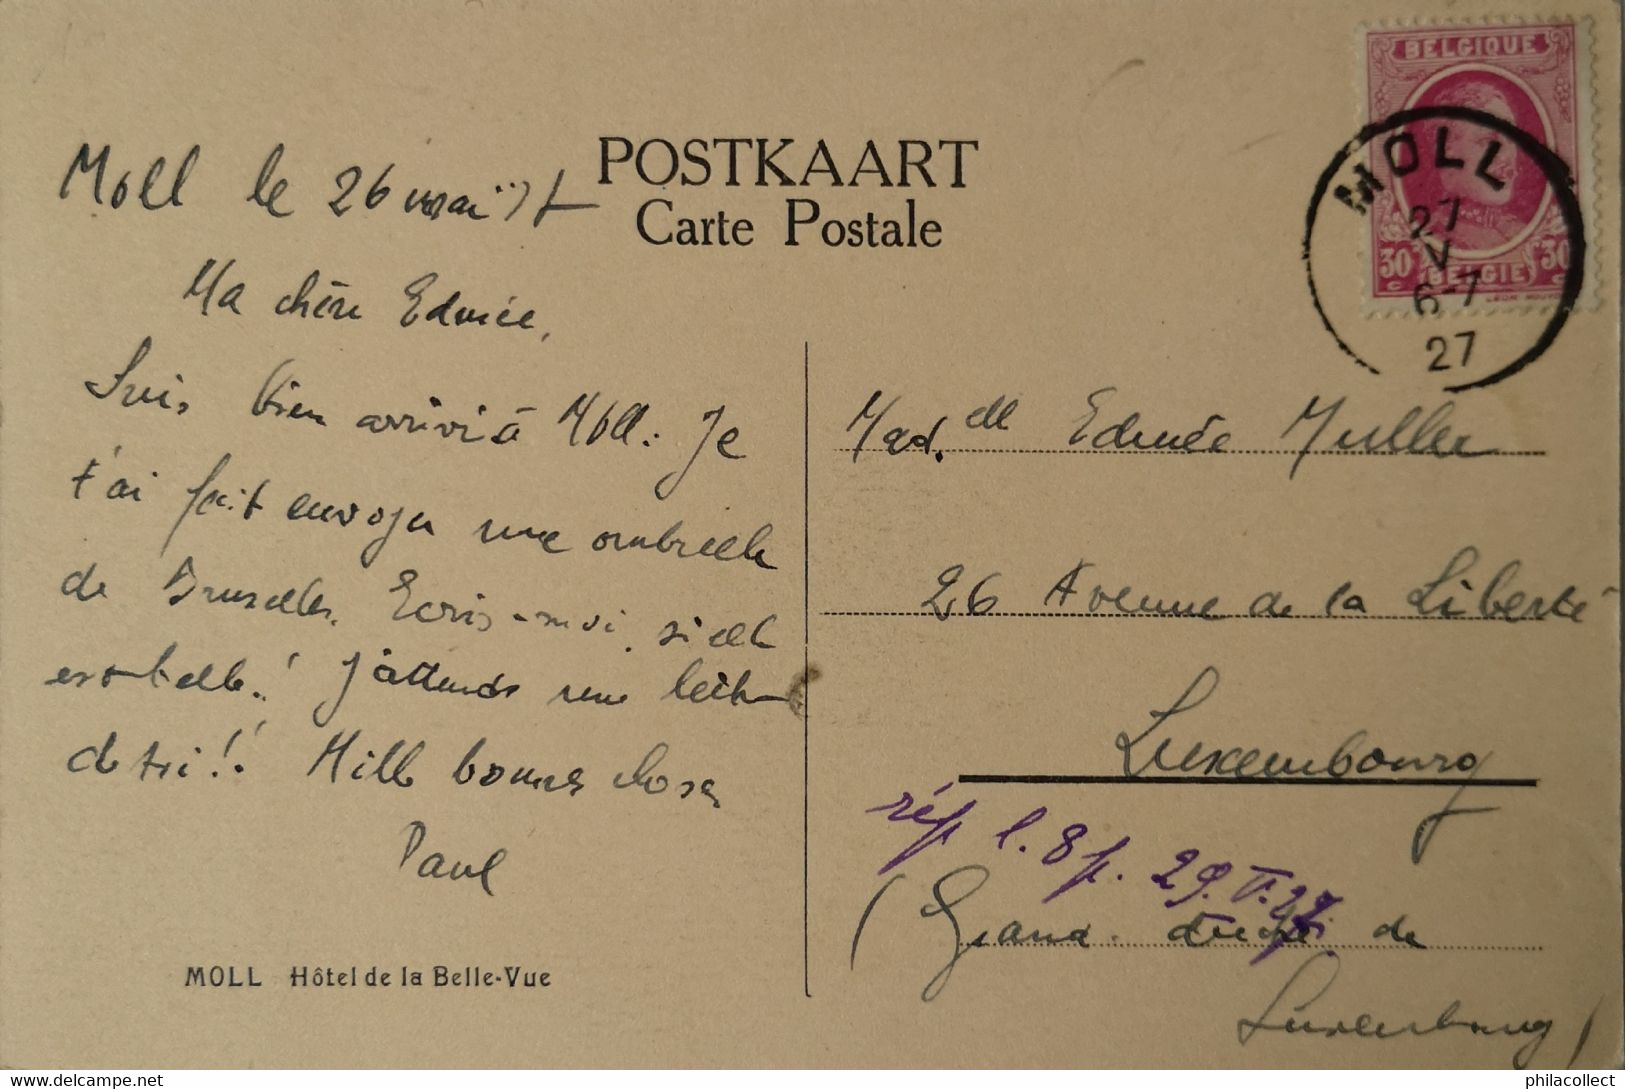 POSTKAART
Carte Postale
Moll le 26 mai 27
Ma chère Edmée,
Suis bien arrivé à Moll. Je
t'ai fait envoyer une ombrelle
de Bruxelles. Ecris-moi si elle
est belle..! J'attends une lettre
de toi!! Mille bonnes choses
Paul
MOLL Hôtel de la Belle-Vue
BELGIQUE
30 30
BELGIE
MOLL
27
V
6-7
27
Mad.elle Edmée Muller
26 Avenue de la Liberté
Luxembourg
rép l. 8 p. 29.V.27
(Grand duché de
Luxembourg)
philacollect